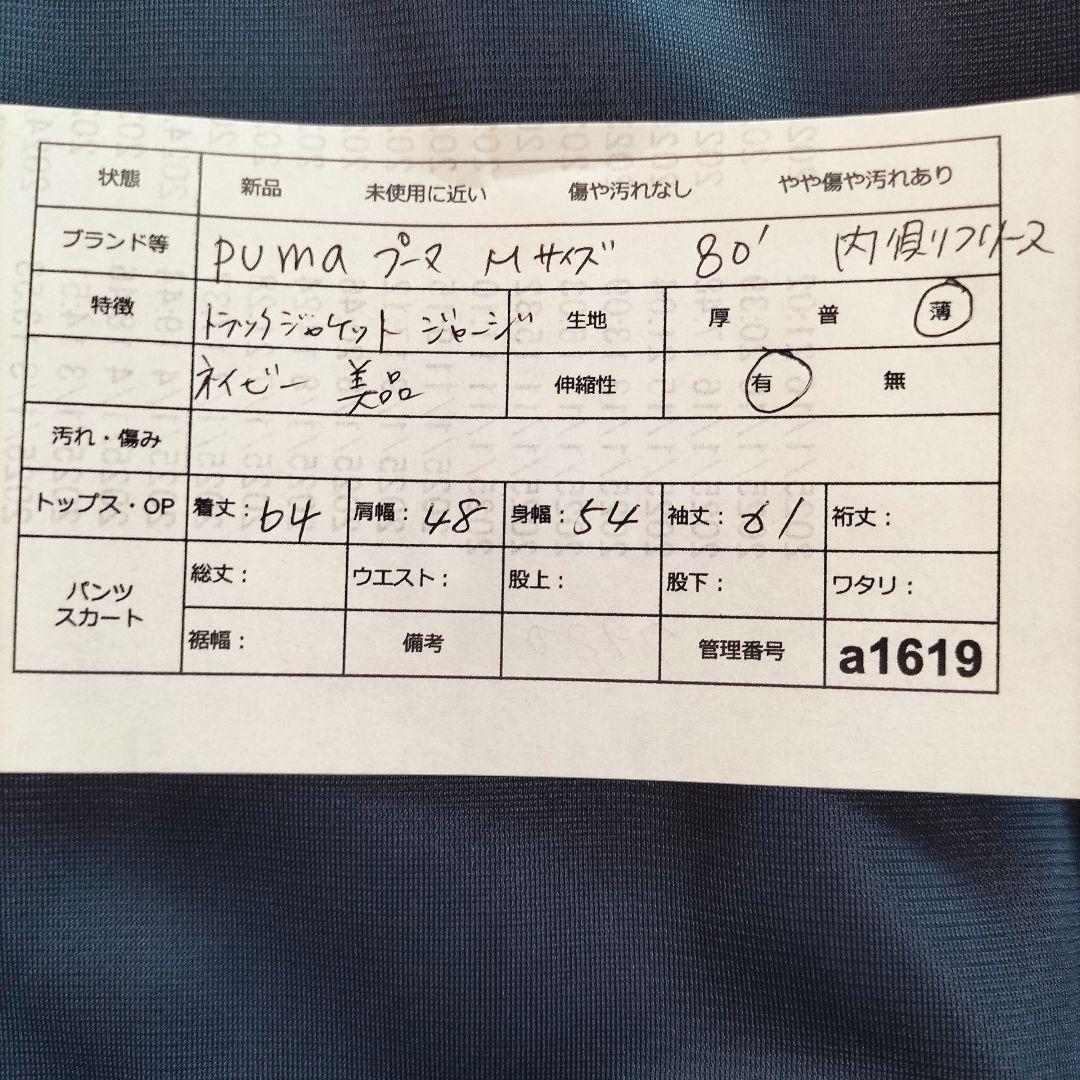 状態 新品 未使用に近い 傷や汚れなし やや傷や汚れあり
ブランド等 PUMA プーマ Mサイズ 80' 内側フリース
特徴 トラックジャケット ジャージ 生地 厚 普 薄
ネイビー 美品 伸縮性 有 無
汚れ・傷み
トップス・OP 着丈：64 肩幅：48 身幅：54 袖丈：61 裄丈：
パンツ スカート 総丈： ウエスト： 股上： 股下： ワタリ：
裾幅： 備考 管理番号 a1619